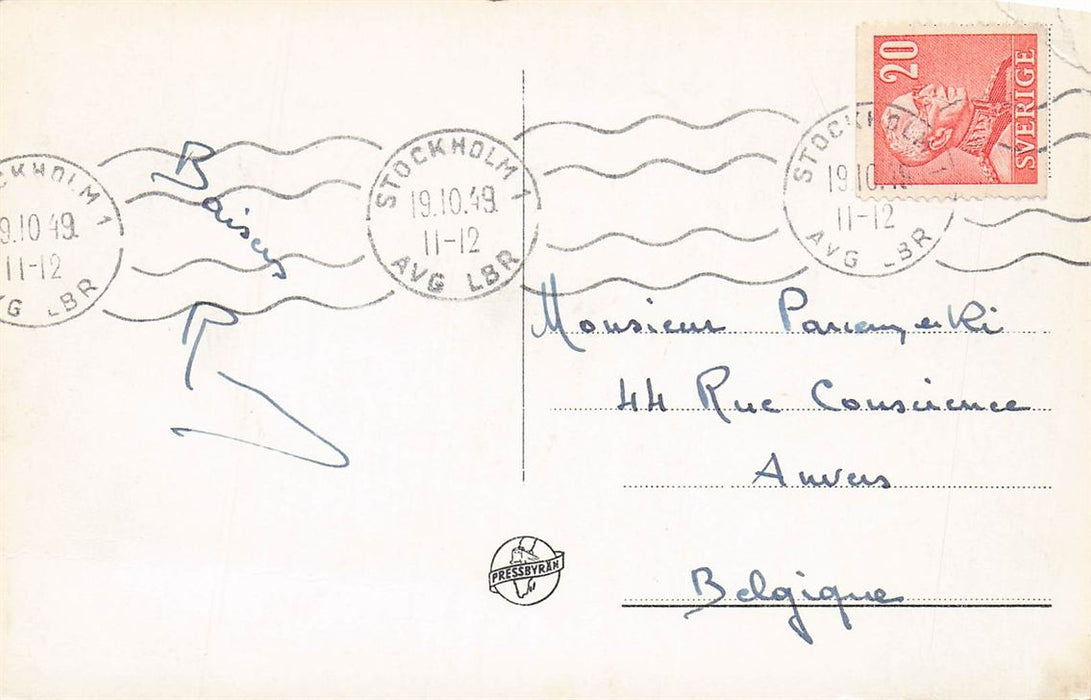 20
SVERIGE
CKHOLM 1
9.10 49.
11-12
VG LBR
STOCKHOLM 1
19.10.49.
11-12
AVG LBR
STOCKHOLM 1
19.10.49
11-12
AVG LBR
Baisers
R
Monsieur
44 Rue Conscience
Anvers
Belgique
PRESSBYRÅN